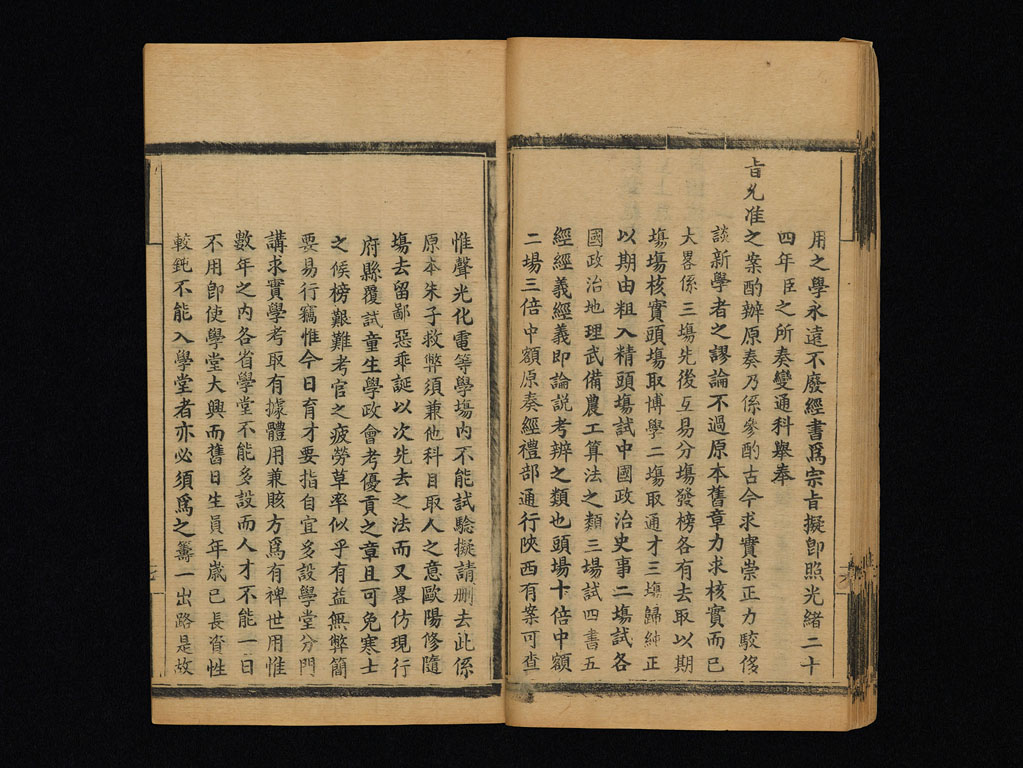 用之學永遠不廢經書爲宗旨擬卽照光緖二十
四年臣之所奏變通科舉奉
旨允准之案酌辦原奏乃係參酌古今求實崇正力駁侈
談新學者之謬論不過原本舊章力求核實而已
大畧係三塲先後互易分塲發榜各有去取以期
塲塲核實頭塲取博學二塲取通才三塲歸純正
以期由粗入精頭塲試中國政治史事二塲試各
國政治地理武備農工算法之類三塲試四書五
經經義經義即論說考辨之類也頭塲十倍中額
二塲三倍中額原奏經禮部通行陝西有案可查
惟聲光化電等學塲內不能試驗擬請刪去此係
原本朱子救弊須兼他科目取人之意歐陽修隨
塲去留鄙惡乖誕以次先去之法而又畧仿現行
府縣覆試童生學政會考優貢之章且可免寒士
之候榜艱難考官之疲勞草率似乎有益無弊簡
要易行竊惟今日育才要指自宜多設學堂分門
講求實學考取有據體用兼賅方爲有裨世用惟
數年之內各省學堂不能多設而人才不能一日
不用卽使學堂大興而舊日生員年歲已長資性
較鈍不能入學堂者亦必須爲之籌一出路是故